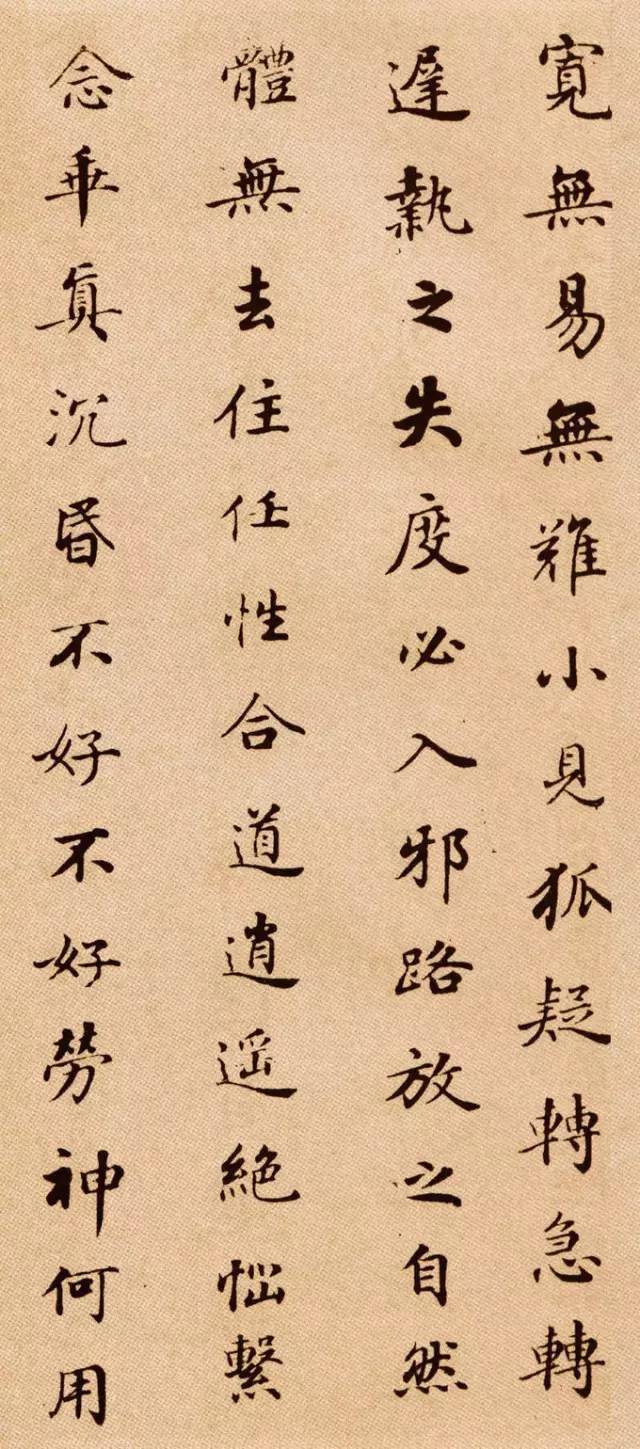 寛無易無難小見狐疑轉急轉
遟執之失度必入邪路放之自然
體無去住任性合道逍遥絶惱繫
念乖真沉昏不好不好勞神何用